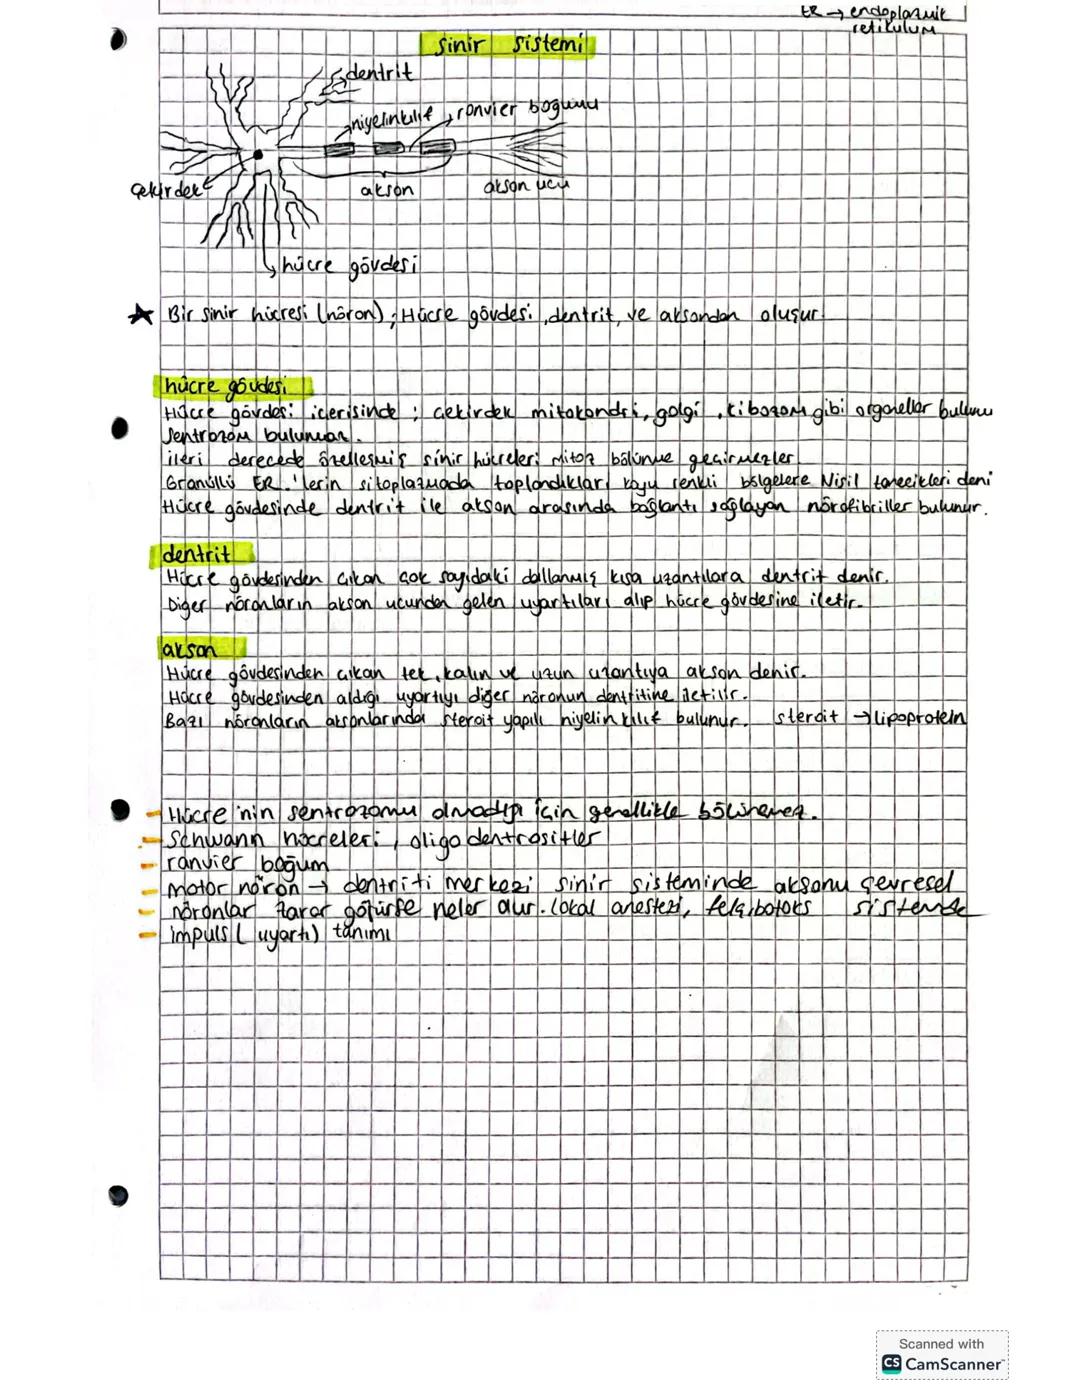 ER → endoplazmik
retikulum
sinir sistemi
dentrit
miyelin kılıf
ranvier boğumu
çekirdek
akson
akson ucu
hücre gövdesi
★ Bir sinir hücresi (nöron); Hücre gövdesi, dentrit, ve aksondan oluşur.
hücre gövdesi
Hücre gövdesi içerisinde; çekirdek mitokondri, golgi, ribozom gibi organeller bulunu
Sentrozom bulunmaz.
ileri derecede özelleşmiş sinir hücreleri Mitoz bölünme geçirmezler
Granüllü ER.'lerin sitoplazmada toplandıkları koyu renkli bölgelere Nisil tanecikleri deni
Hücre gövdesinde dentrit ile akson arasında bağlantı sağlayan nörofibriller bulunur.
dentrit
Hücre gövdesinden çıkan çok sayıdaki dallanmış kısa uzantılara dentrit denir.
Diğer nöronların akson ucundan gelen uyartıları alıp hücre gövdesine iletir.
akson
Hücre gövdesinden çıkan tek, kalın ve uzun uzantıya akson denir.
Hücre gövdesinden aldığı uyartıyı diğer nöronun dentritine iletilir.
Bazı nöronların aksonlarında steroit yapılı miyelin kılıf bulunur. steroit → lipoprotein
- Hücre'nin sentrozomu olmadığı için genellikle bölünemez.
- Schwann hücreleri, oligodentrositler
- ranvier boğum
- motor nöron → dentriti merkezi sinir sisteminde aksonu çevresel
sistemde
- nöronlar zarar görürse neler olur. lokal anestezi, felç, botoks
- impuls (uyartı) tanımı
Scanned with
CS CamScanner